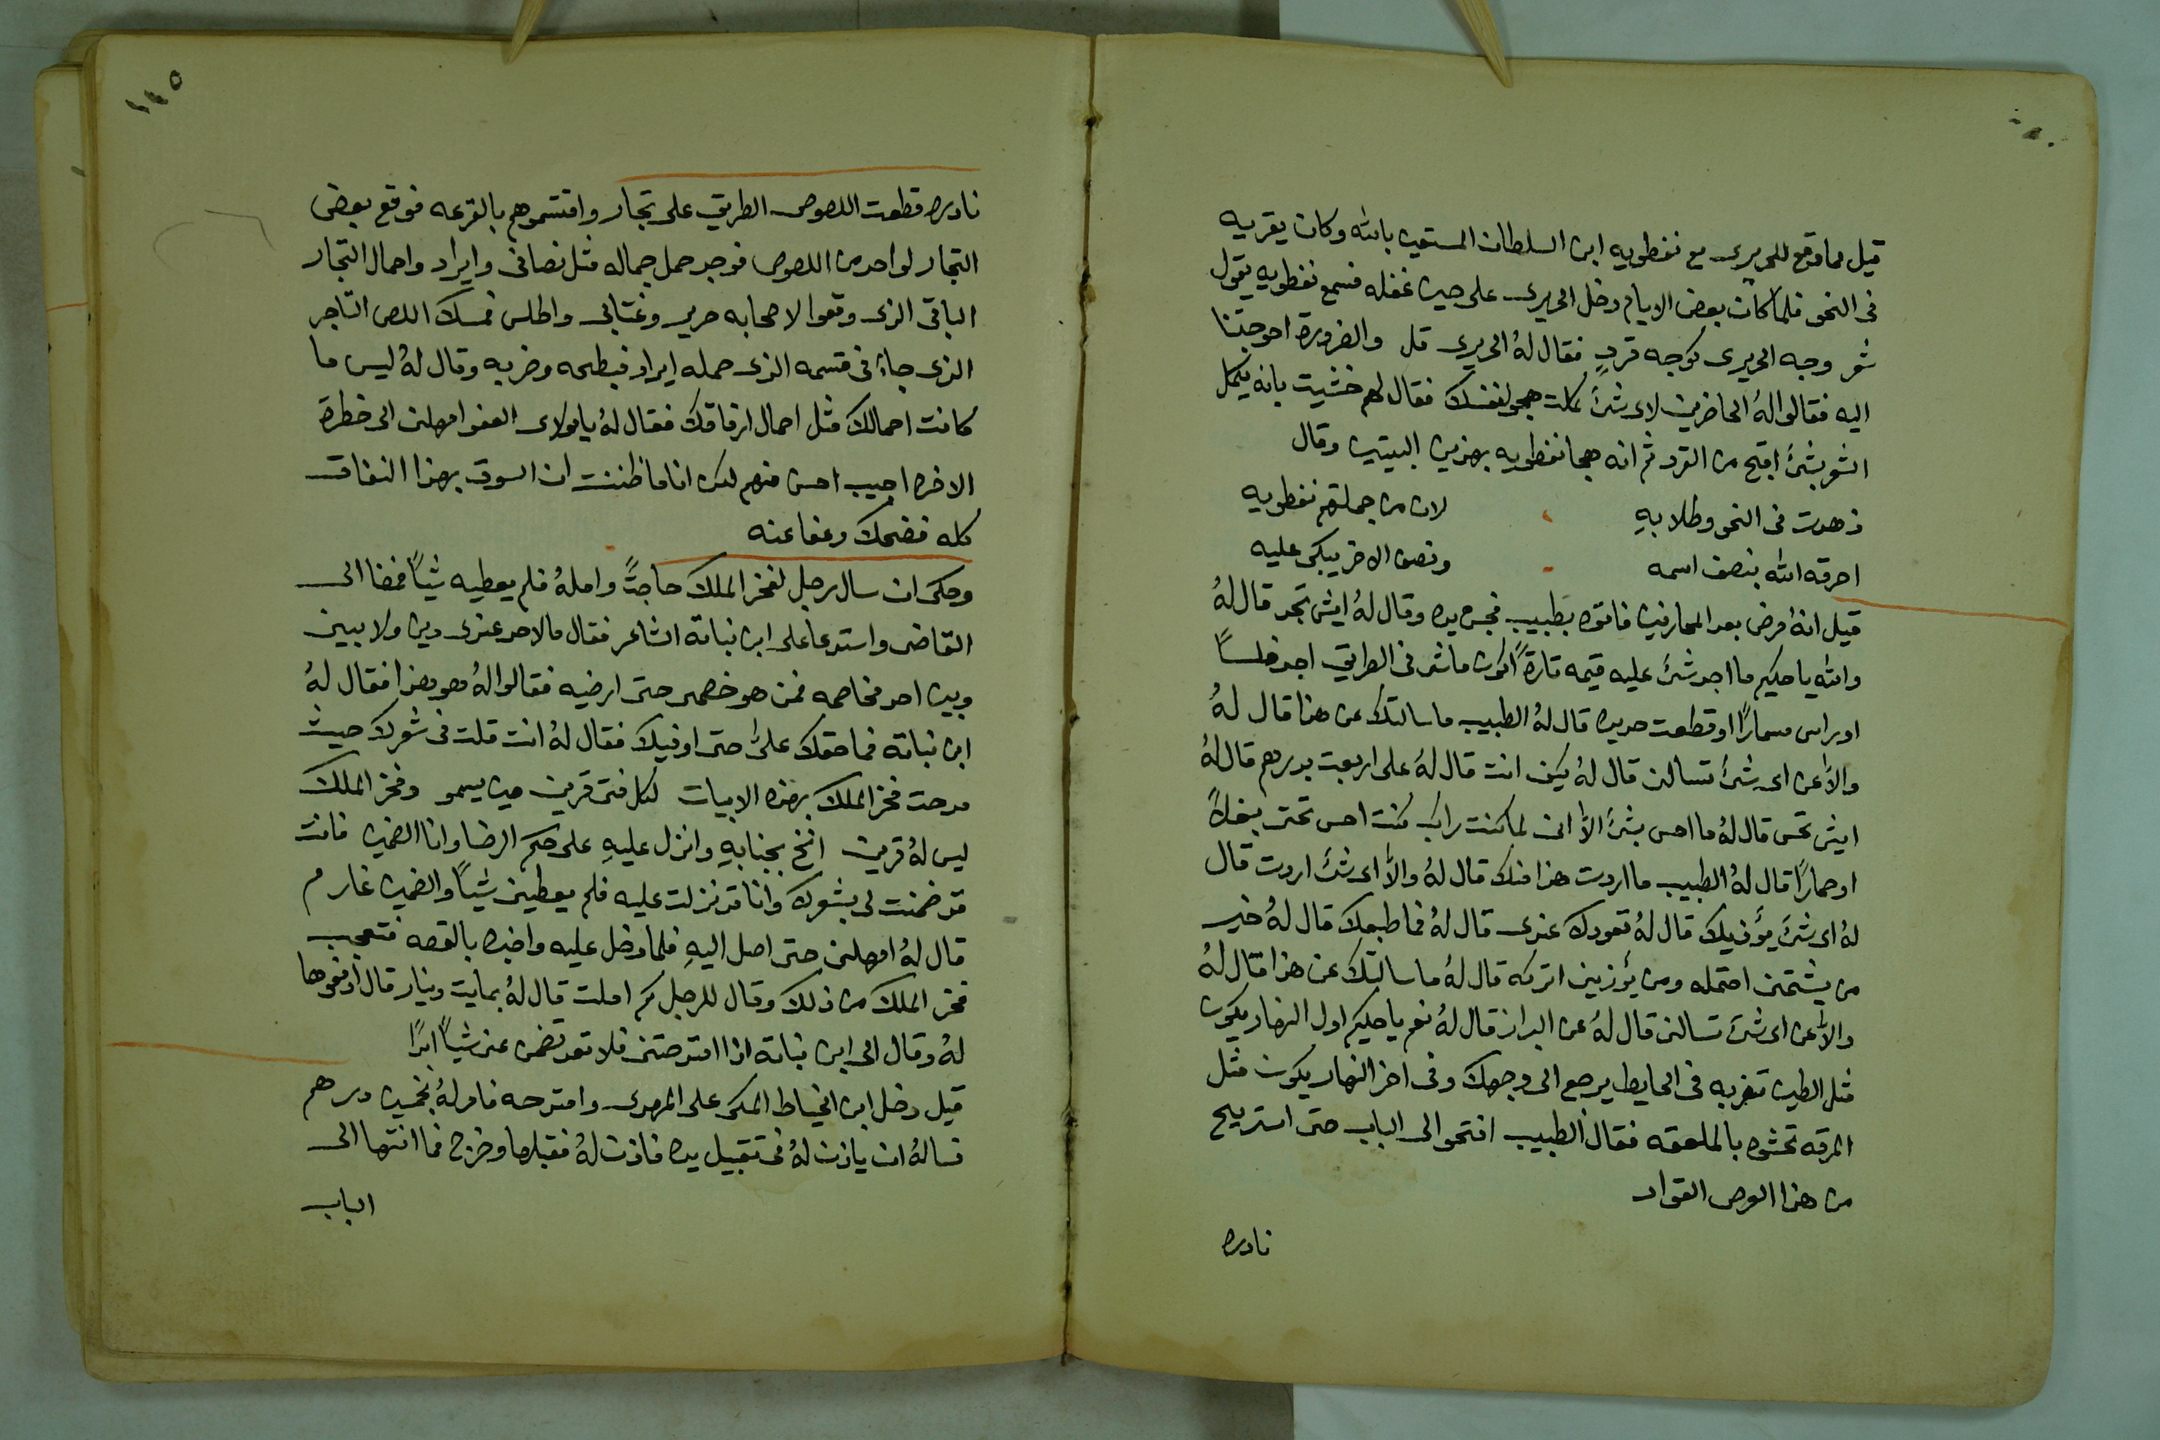 قيل مما وقع للحريرى مع نفطويه ابن السلطان المستعين بالله وكان يقريه
فى النحو فلما كان بعض الايام دخل الحريرى على حين غفله فسمع نفطويه يقول
شعر وجه الحريرى كوجه قردٍ فقال لهُ الحريرى قل والضرورة احوجتنا
اليه فقالوا لهُ الحاضرين لاى شئ كملت هجو لنفسك فقال لهم خشيت بانه يكمل
الشعر بشئ اقبح من القرد ثم انه هجا نفطويه بهذين البيتين وقال
زهدت فى النحو وطلابهِ لان من جملتهم نفطويه
احرقه الله بنصف اسمه ونصف الاخر يبكى عليه
قيل انهُ مرض بعد المحارفين فاتوه بطبيب فجس يده وقال لهُ ايش تجد قال لهُ
والله يا حكيم ما اجد شئ عليه قيمه تارةً اكون ماشى فى الطريق اجد فلساً
او راس مسمارًا او قطعت حديده قال لهُ الطبيب ما سالتك عن هذا قال لهُ
والاّ عن اى شئ تسالنى قال لهُ كيف انت قال لهُ على اربعت بدرهم قال لهُ
ايش تحس قال لهُ ما احس بشئ الاّ انى لما كنت راكب كنت احس تحتى بغلاً
او حمارًا قال لهُ الطبيب ما اردت هذا منك قال لهُ والاّ اى شئ اردت قال
لهُ اى شئ يؤذيك قال لهُ قعودك عندى قال لهُ فما طبعك قال لهُ خير
من يشتمنى احتمله ومن يؤذينى اتركه قال لهُ ما سالتك عن هذا قال لهُ
والاّ عن اى شئ تسالنى قال لهُ عن البراز قال لهُ نعم يا حكيم اول النهار يكون
مثل الطين تضربه فى الحايط يرجع الى وجهك وفى اخر النهار يكون مثل
المرقه تحشوه بالملعقه فقال الطبيب افتحوا لى الباب حتى استريح
من هذا العرص القواد
نادره
١٤٥
نادره قطعت اللصوص الطريق على تجار واقتسموهم بالقرعه فوقع بعض
التجار لواحد من اللصوص فوجد حمل جماله مثل نصافى وايراد واحمال التجار
الباقى الذى وقعوا لاصحابه حرير وعتابى واطلس فمسك اللص التاجر
الذى جاءَ فى قسمه الذى حمله ايراد فبطحه وضربه وقال لهُ ليس ما
كانت احمالك مثل احمال ارفاقك فقال لهُ يا مولاى العفو امهلنى الى خطرة
الاخره اجيب احسن منهم لكن انا ما ظننت ان السوق بهذا النفاق
كله فضحك وعفا عنه
وحكى ان سال رجل لفخر الملك حاجتًا وامله فلم يعطيه شياً فمضا الى
القاضى واستدعا على ابن نباتة الشاعر فقال ما لاحد عندى دين ولا بينى
وبين احد مخاصمه فمن هو خصمى حتى ارضيه فقالوا لهُ هو هذا فقال لهُ
ابن نباتة فما حقك علىّ حتى اوفيك فقال لهُ انت قلت فى شعرك حيث
مدحت فخر الملك بهذه الابيات لكل فتى قرين حين يسمو وفخر الملك
ليس لهُ قرين انخ بجنابهِ وانزل عليهِ على حكم الرضا وانا الضمين فانت
قد ضمنت لى بشعرك وانا قد نزلت عليه فلم يعطينى شياً والضمين غارم
قال لهُ امهلنى حتى اصل اليهِ فلما دخل عليه واخبره بالقصه فتعجب
فخر الملك من ذلك وقال للرجل كم املت قال لهُ بمايت دينار قال ادفعوها
لهُ وقال الى ابن نباتة اذا امتدحتنى فلا تعد تضمن عنى شياً ابدًا
قيل دخل ابن الخياط المكى على المهدى وامتدحه فامر لهُ بخمسين درهم
فساله ان ياذن لهُ فى تقبيل يده فاذن لهُ فقبلها وخرج فما انتها الى
الباب